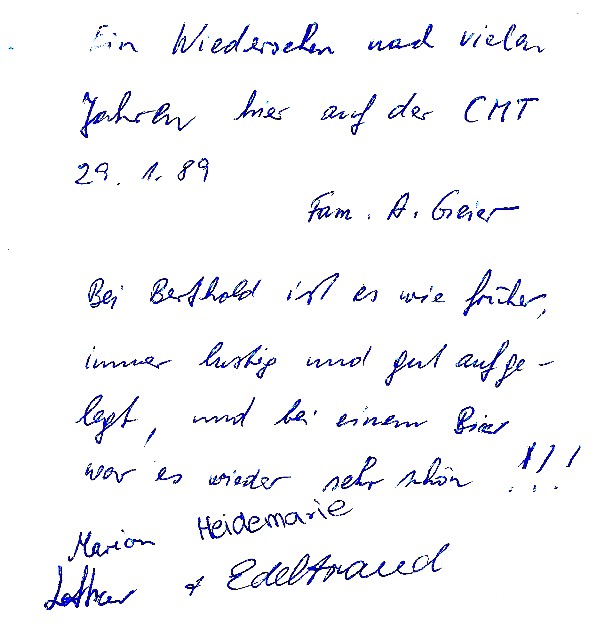 Ein Wiedersehen nach vielen
Jahren hier auf der CMT
29. 1. 89
Fam. A. Geier
Bei Berthold ist es wie früher,
immer lustig und gut aufge-
legt, und bei einem Bier
war es wieder sehr schön !!!
Marion Heidemarie
Lothar + Edeltraud